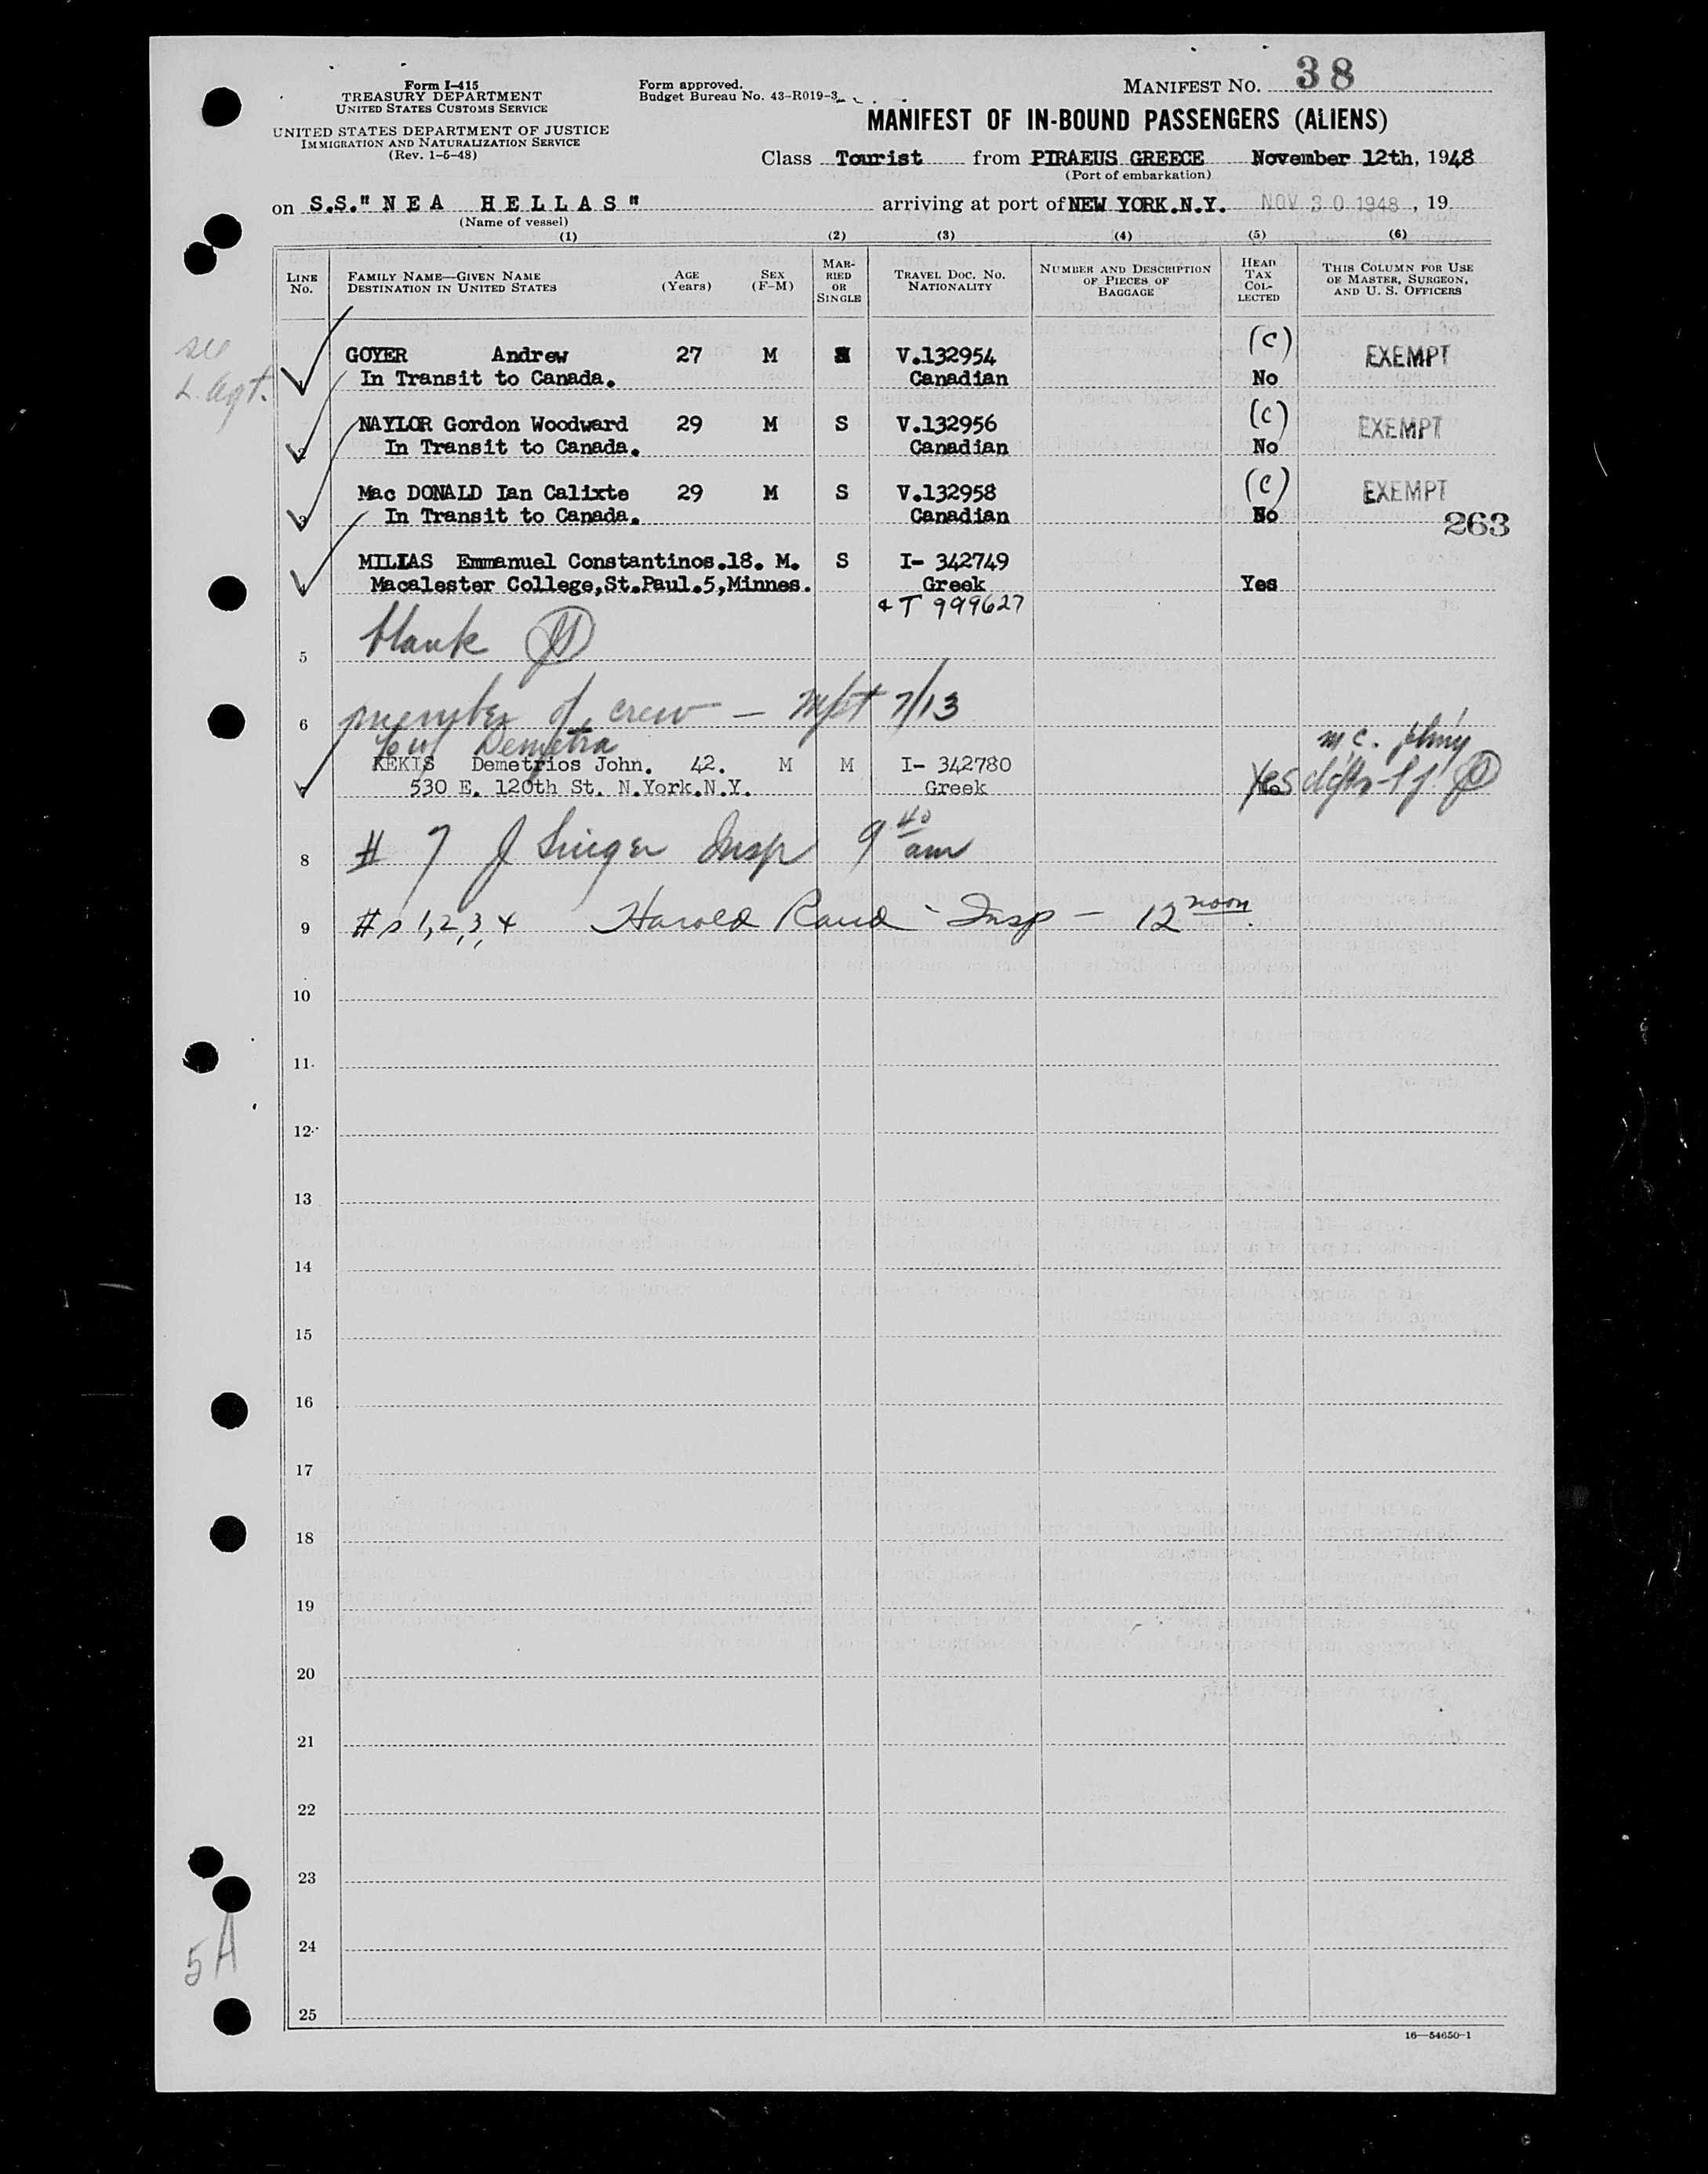 Form I-415
TREASURY DEPARTMENT
UNITED STATES CUSTOMS SERVICE
UNITED STATES DEPARTMENT OF JUSTICE
IMMIGRATION AND NATURALIZATION SERVICE
(Rev. 1-5-48)
Form approved.
Budget Bureau No. 43-R019-3
MANIFEST NO. 38
MANIFEST OF IN-BOUND PASSENGERS (ALIENS)
Class Tourist from PIRAEUS GREECE November 12th, 1948
(Port of embarkation)
on S.S." N E A H E L L A S " arriving at port of NEW YORK.N.Y. NOV 30 1948, 19
(Name of vessel)
(1) (2) (3) (4) (5) (6)
LINE NO. FAMILY NAME—GIVEN NAME DESTINATION IN UNITED STATES AGE (Years) SEX (F-M) MARRIED OR SINGLE TRAVEL DOC. NO. NATIONALITY NUMBER AND DESCRIPTION OF PIECES OF BAGGAGE HEAD TAX COLLECTED THIS COLUMN FOR USE OF MASTER, SURGEON, AND U. S. OFFICERS
see
Agt.
1 GOYER Andrew 27 M V.132954 (C) EXEMPT
In Transit to Canada. Canadian No
2 NAYLOR Gordon Woodward 29 M S V.132956 (C) EXEMPT
In Transit to Canada. Canadian No
3 Mac DONALD Ian Calixte 29 M S V.132958 (C) EXEMPT
In Transit to Canada. Canadian No 263
MILIAS Emmanuel Constantinos.18. M. S I- 342749
Macalester College,St.Paul.5,Minnes. Greek Yes
& T 999627
5 blank
6 member of crew — 7/13
Demetra
KEKIS Demetrios John. 42. M M I- 342780
530 E. 120th St. N.York.N.Y. Greek Yes
8 # 7 J Singer Insp 9 40 am
9 #s 1,2,3,4 Harold Rand - Insp - 12 noon
10
11
12
13
14
15
16
17
18
19
20
21
22
23
24
25
5A
16—54650-1